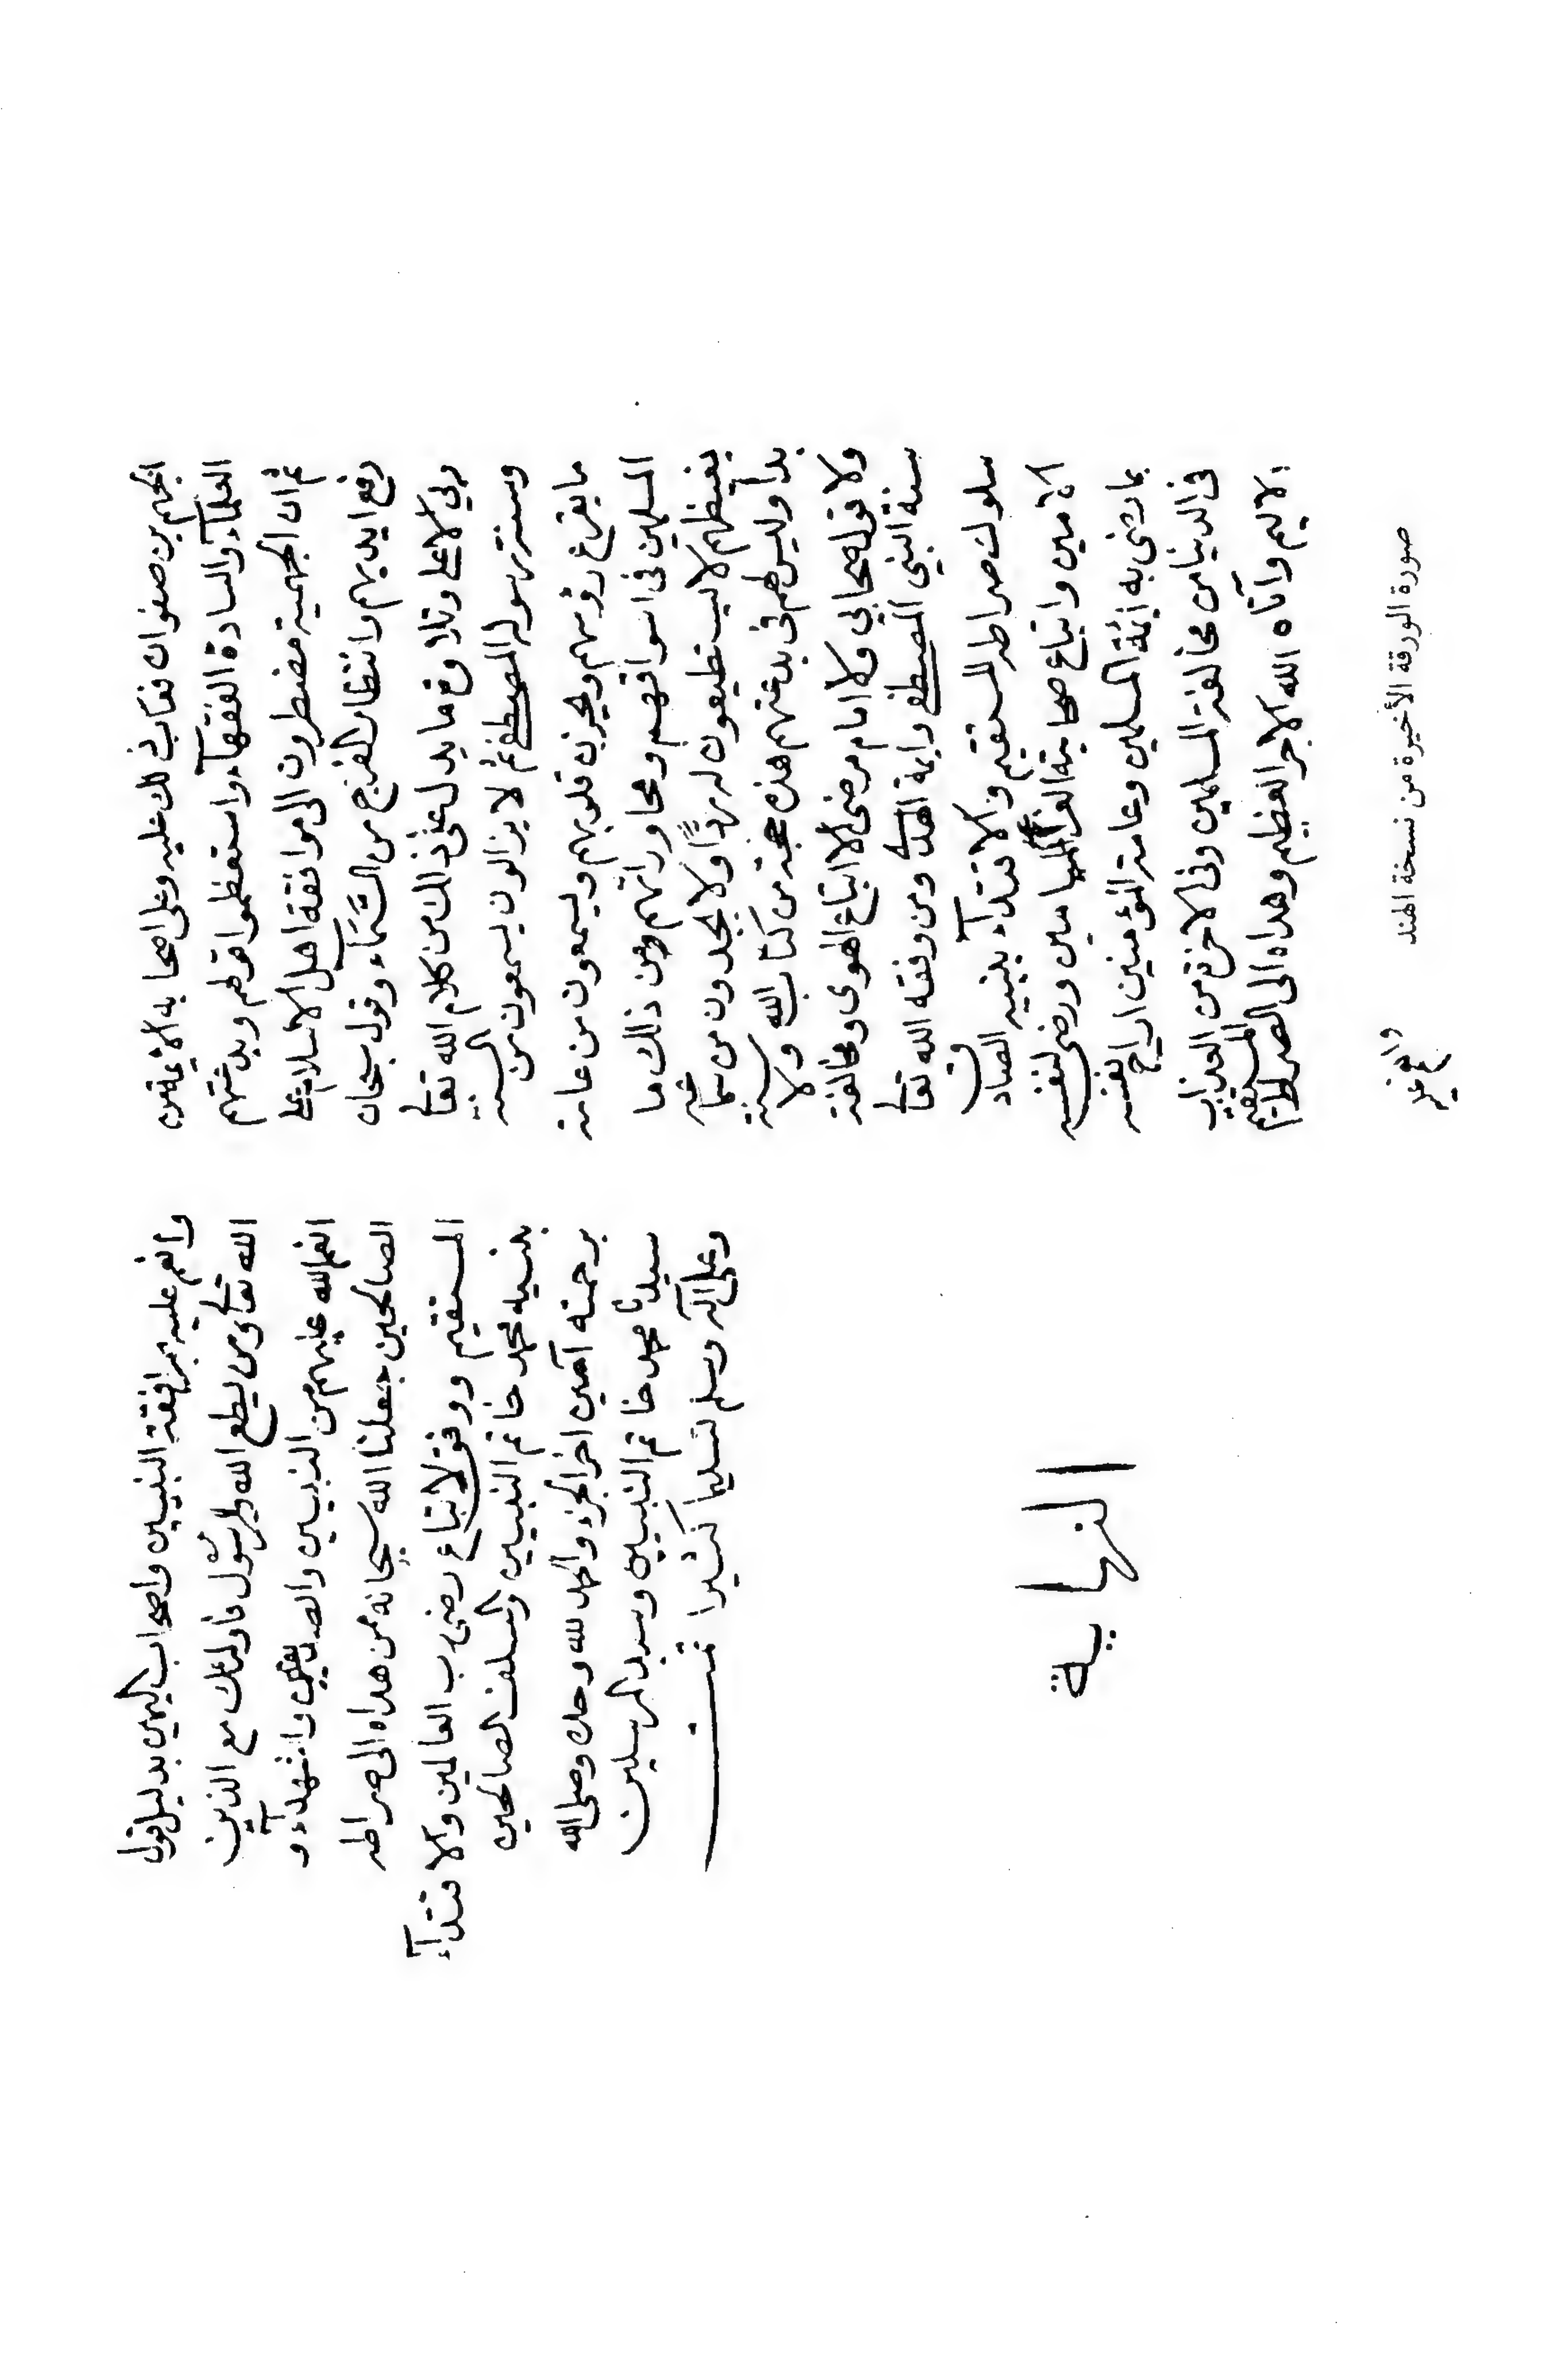 الجهم بن صفوان فعاب ذلك عليه وعلى اصحابه الائمة من
العلمآء والسادة الفقهآء واستعظموا قولهم وبدعتهم
ثم ان الجهمية مضطرون الى موافقة اهل الاسلام على
رفع ايديهم وانتظار الفرج من السَّمَاء وقول سبحان
ربي الاعلى وتلاوة ما يدل على ذلك من كلام الله تعالى
وسنة رسوله المصطفى ثم لا يزالون يسمعون من السنة
ما يقرع رؤسهم ويحزن قلوبهم ويسمعون من عامة
المسلمين في اسواقهم ومحاوراتهم من ذلك ما
يغيظهم لا يستطيعون له ردًّا ولا يجدون من سماعه
بدا وليس لهم في بدعتهم هذه حجة من كتاب الله ولا سنة
ولا قول صحابي ولا امام مرضى الا اتباع الهوى ومخالفة
سنة النبي المصطفى وايمة الهدى ومن وفقه الله تعالى
سلوك صراطه المستقيم والاقتدآء بنبيه الصادق
الامين واتباع صحابته الغر الميامين ورضي لنفسه
بما رضى به ائمة المسلمين وعامة المؤمنين اراح نفسه
في الدنيا من مخالفة المسلمين وفى الاخرة من العذاب
الاليم وآتاه الله الاجر العظيم وهداه الى الصراط المستقيم
وانعم
عليه
صورة الورقة الأخيرة من نسخة الهند
وانعم عليه بمرافقة النبيين واصحاب اليمين بدليل قول
الله تعالى ومن يطع الله والرسُول فاولئك مع الذين
انعم الله عليهم من النبيين والصديقين والشهدآء و
الصالحين جعلنا الله سبحانه ممن هداه الى صراطه
المستقيم ووفق لاتباع رضى رب العالمين والاقتدآء
بنبيه محمد خاتم النبيين والسلف الصالحين
برحمته آمين اخر الجزء والحمد لله وحده وصلى الله
سيدنا محمد خاتم النبيين وسيد المرسلين
وعلى اله وسلم تسليما كثيرا تمت
النهاية